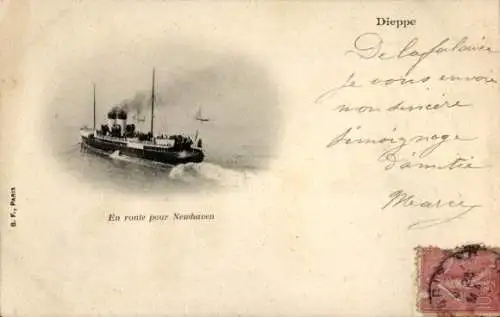 Dieppe
De la falaise
je vous envoie
mon sincère
témoignage
d'amitié
Marie
En route pour Newhaven
B. F., PARIS